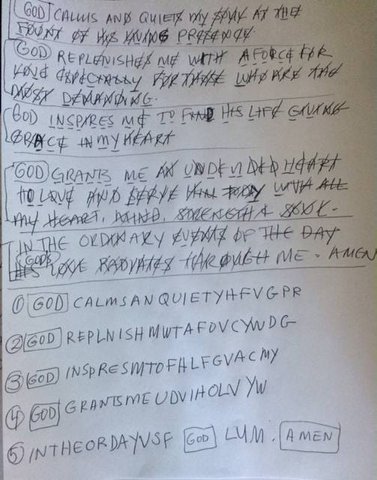 GOD CALMS AND QUIETS MY SOUL AT THE
FOUNT OF HIS LIVING PRESENCE
GOD REPLENISHES ME WITH A FORCE FOR
LOVE ESPECIALLY FOR THOSE WHO ARE THE
MOST DEMANDING.
GOD INSPIRES ME TO FIND HIS LIFE GIVING
GRACE IN MY HEART
GOD GRANTS ME AN UNDEVIDED HEART
TO LOVE AND SERVE HIM TODAY WITH ALL
MY HEART, MIND, STRENGTH & SOUL.
IN THE ORDINARY EVENTS OF THE DAY
GOD'S LOVE RADIATES THROUGH ME - AMEN
① GOD CALMSANQUIETYHFVGPR
② GOD REPLNISHMWTAFDVCYWDG
③ GOD INSPRESMTOFHLFGVACMY
④ GOD GRANTSMEUDVIHOLVYW
⑤ INTHEORDAYVSF GOD LUM. AMEN